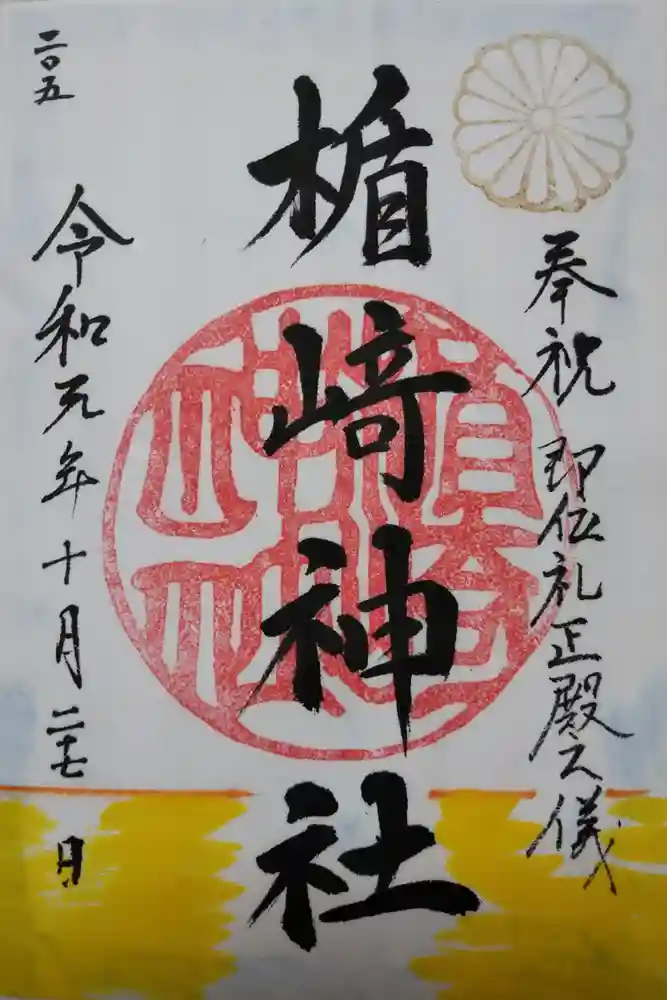 奉祝 即位礼正殿之儀
楯崎神社
令和元年十月二十七日
二〇五